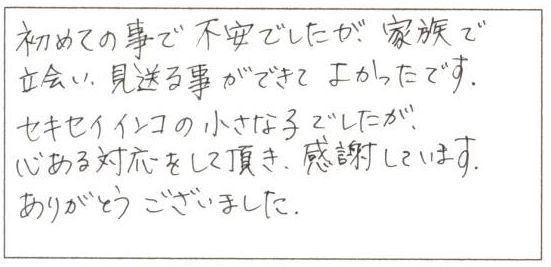 初めての事で 不安でしたが、家族で
立会い、見送る事ができて よかったです.
セキセイインコの小さな子でしたが、
心ある対応をして頂き、感謝しています.
ありがとう ございました.